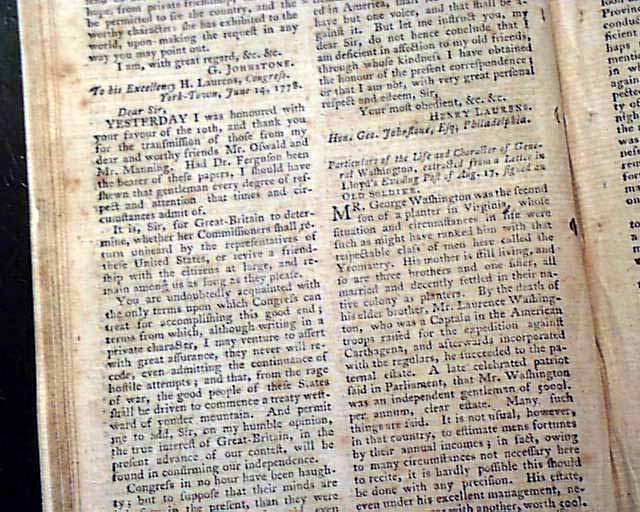 from private friendship, and the
be permitted to see the country, and the
worthy characters she has exhibited to the
world, upon making the request in any
way you may point out.
I am, with great regard, &c. &c.
G. JOHNSTONE.
To his Excellency H. Laurens, Congress.
York-Town, June 14, 1778.
Dear Sir,
YESTERDAY I was honoured with
your favour of the 10th, and thank you
for the transmission of those from my
dear and worthy friends Mr. Oswald and
Mr. Manning. Had Dr. Ferguson been
the bearer of these papers, I should have
shewn that gentleman every degree of res-
pect and attention that times and cir-
cumstances admit of.
It is, Sir, for Great-Britain to deter-
mine, whether her Commissioners shall re-
turn unheard by the representatives of
these United States, or revive a friend-
ship with the citizens at large, and re-
main among us as long as they please.
You are undoubtedly acquainted with
the only terms upon which Congress can
treat for accomplishing this good end;
terms from which, although writing in a
private character, I may venture to assert
with great assurance, they never will re-
cede, even admitting the continuance of
hostile attempts; and that, from the rage
of war, the good people of these States
shall be driven to commence a treaty west-
ward of yonder mountain. And permit
me to add, Sir, on my humble opinion,
the true interest of Great-Britain, in the
present advance of our contest, will be
found in confirming our independence.
Congress in no hour have been haugh-
ty; but to suppose that their minds are
in the present, than they were
even
ed in America, shall
have but one voice, and that shall be a-
gainst it. But let me instruct you, my
dear Sir, do not hence conclude that I
am deficient in affection to my old friends,
through whose kindness I have obtained
the honour of the present correspondence;
or that I am not, with very great personal
respect and esteem, Sir,
Your most obedient, &c. &c.
HENRY LAURENS.
Hon. Geo. Johnstone, Esq; Philadelphia.
Particulars of the Life and Character of Gene-
ral Washington, extracted from a Letter in
Lloyd's Evening Post of Aug. 17, signed an
OLD SOLDIER.
MR. George Washington was the second
son of a planter in Virginia, whose
situation and circumstances in life were
such as might have ranked him with that
respectable class of men here called the
Yeomanry. His mother is still living, and
so are three brothers and one sister, all
married and decently settled in their na-
tive colony as planters. By the death of
his elder brother, Mr. Laurence Washing-
ton, who was a Captain in the American
troops raised for the expedition against
Carthagena, and afterwards incorporated
with the regulars, he succeeded to the pa-
ternal estate. A late celebrated patriot
said in Parliament, that Mr. Washington
was an independent gentleman of 5000l.
per annum, clear estate. Many such
things are said. It is not usual, however,
in that country, to estimate mens fortunes
by their annual incomes; in fact, owing
to many circumstances not necessary here
to recite, it is hardly possible this should
be done with any precision. His estate,
even under his excellent management, ne-
with another, worth 500l.